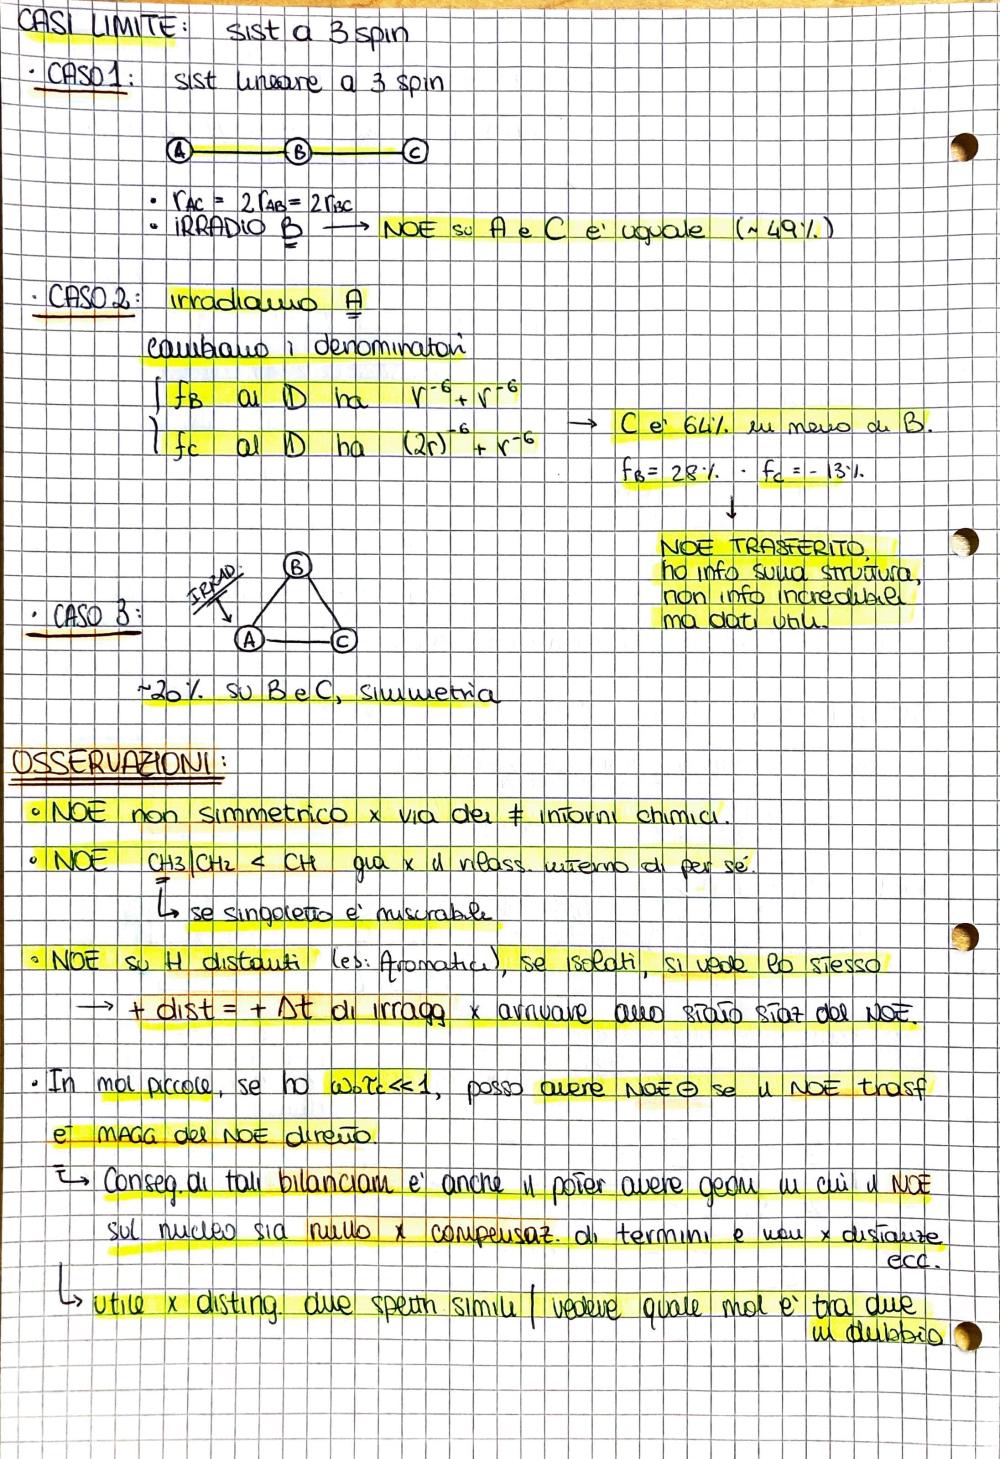 CASI LIMITE: sist a 3 spin
· CASO 1: sist lineare a 3 spin
A B C
• rAC = 2rAB = 2rBC
• IRRADIO B → NOE su A e C e' uguale (~49%)
· CASO 2: irradiamo A
cambiano i denominatori
{ fB al D ha r⁻⁶ + r⁻⁶
fc al D ha (2r)⁻⁶ + r⁻⁶
→ C e' 64% in meno di B.
fB = 28% · fc = - 13%
↓
NOE TRASFERITO,
ho info sulla struttura,
non info incredibili
ma dati utili.
IRRAD.
B
· CASO 3:
A C
~20% su B e C, simmetria
OSSERVAZIONI:
• NOE non simmetrico x via dei ≠ intorni chimici.
• NOE CH3/CH2 < CH già x il rilass. interno di per sé.
↳ se singoletto e' misurabile
• NOE su H distanti (es: Aromatici), se isolati, si vede lo stesso
→ + dist = + Δt di irragg x arrivare allo stato staz del NOE.
· In mol piccole, se ho ω₀τc<<1, posso avere NOE ⊖ se il NOE trasf
e' MAGG del NOE diretto.
↳ Conseg. di tali bilanciam e' anche il poter avere geom in cui il NOE
sul nucleo sia nullo x compensaz. di termini e non x distanze
ecc.
↳ utile x disting. due spettri simili / vedere quale mol e' tra due
in dubbio